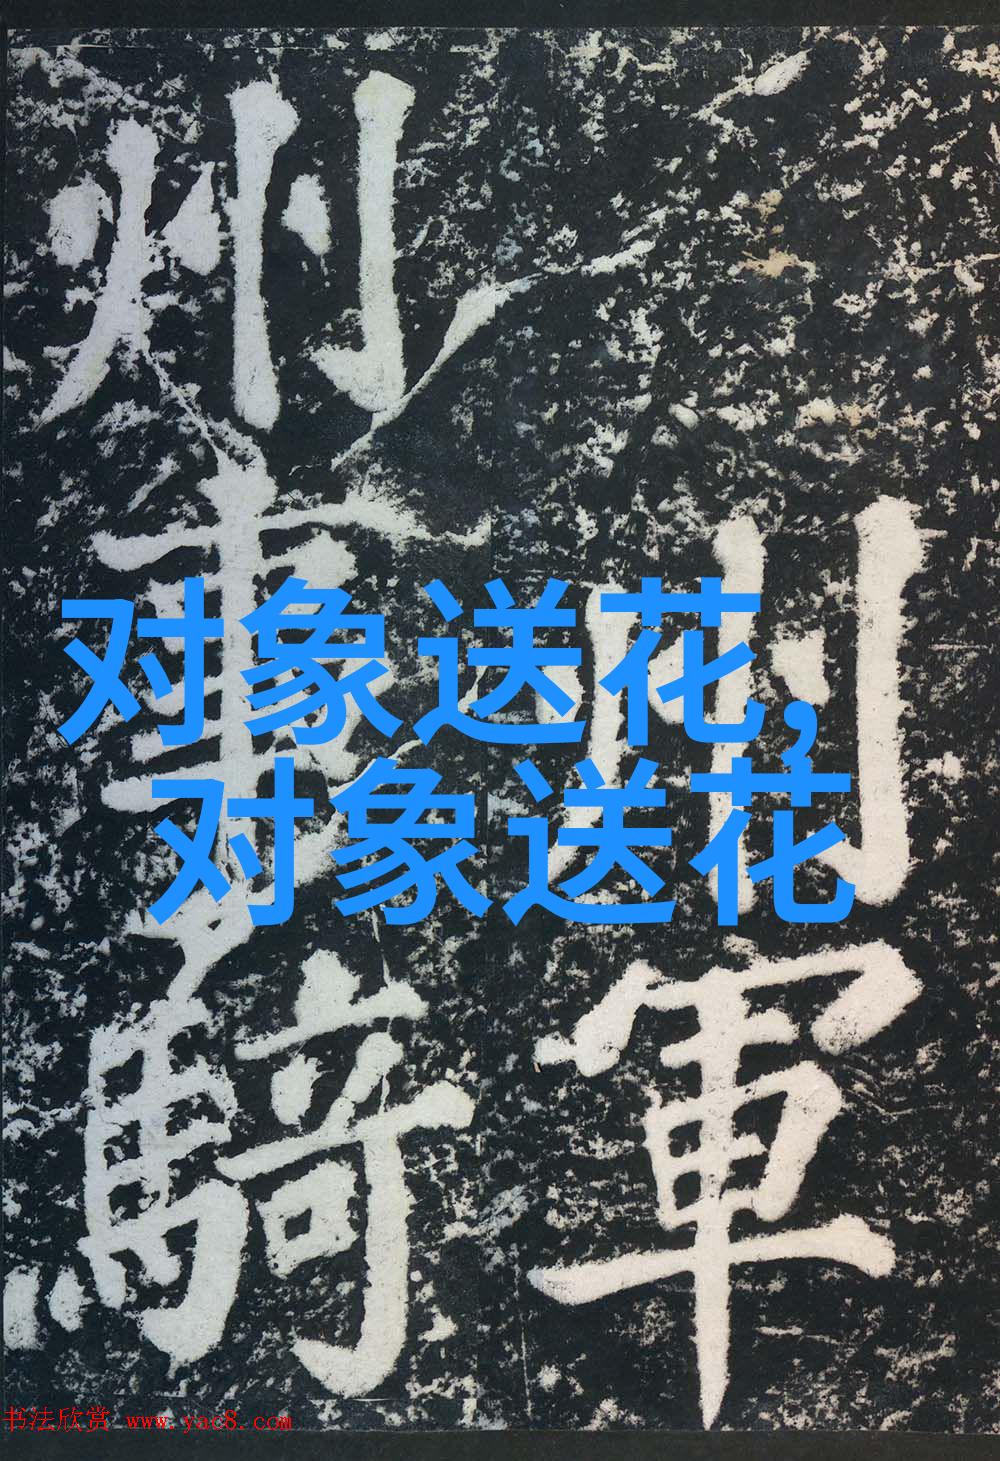 州軍
州事騎
对象送花,
对象送花
书法欣赏 www.yac8.com